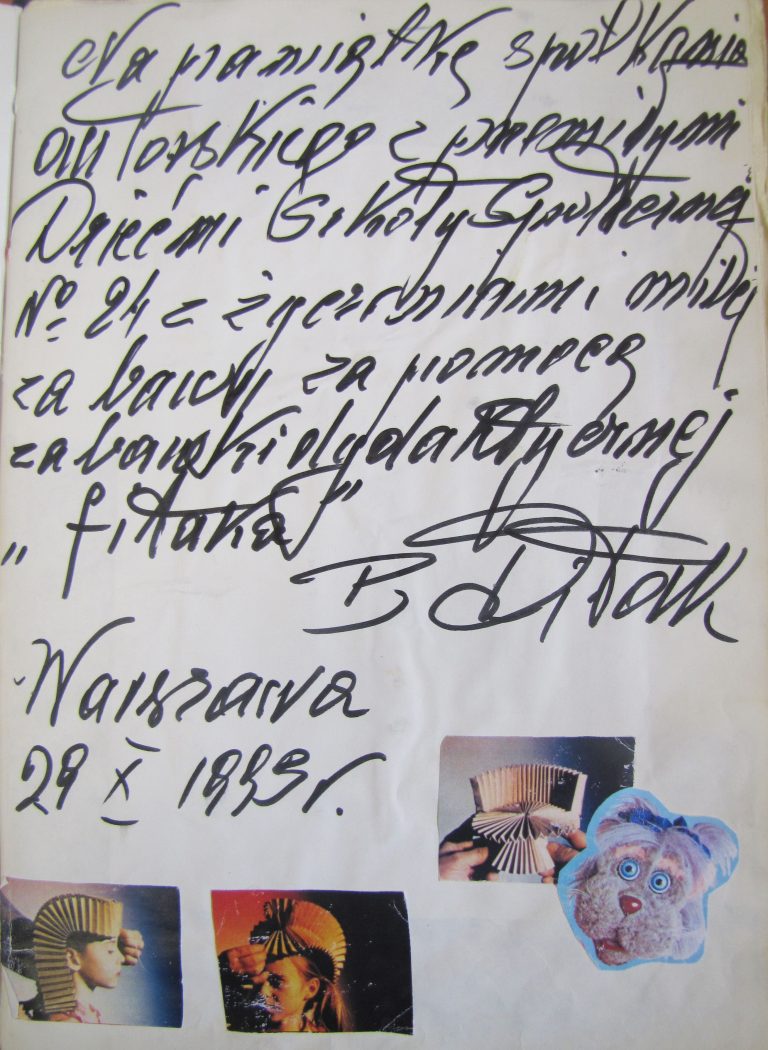 Na pamiątkę spotkania
autorskiego z przemiłymi
Dziećmi Szkoły Społecznej
No 24 z życzeniami miłej
zabawy za pomocą
zabawki dydaktycznej
„fitaka"
Warszawa
29 X 1993 r.